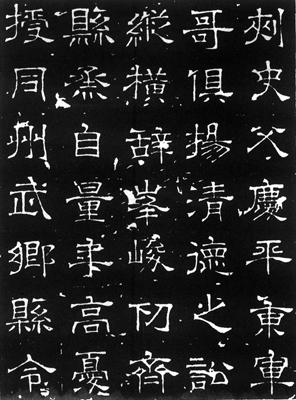 刺史父慶平東軍
哥俱揚清德之訟
縱橫辭峯峻切齊
縣自量聿高憂
授同州武鄉縣令